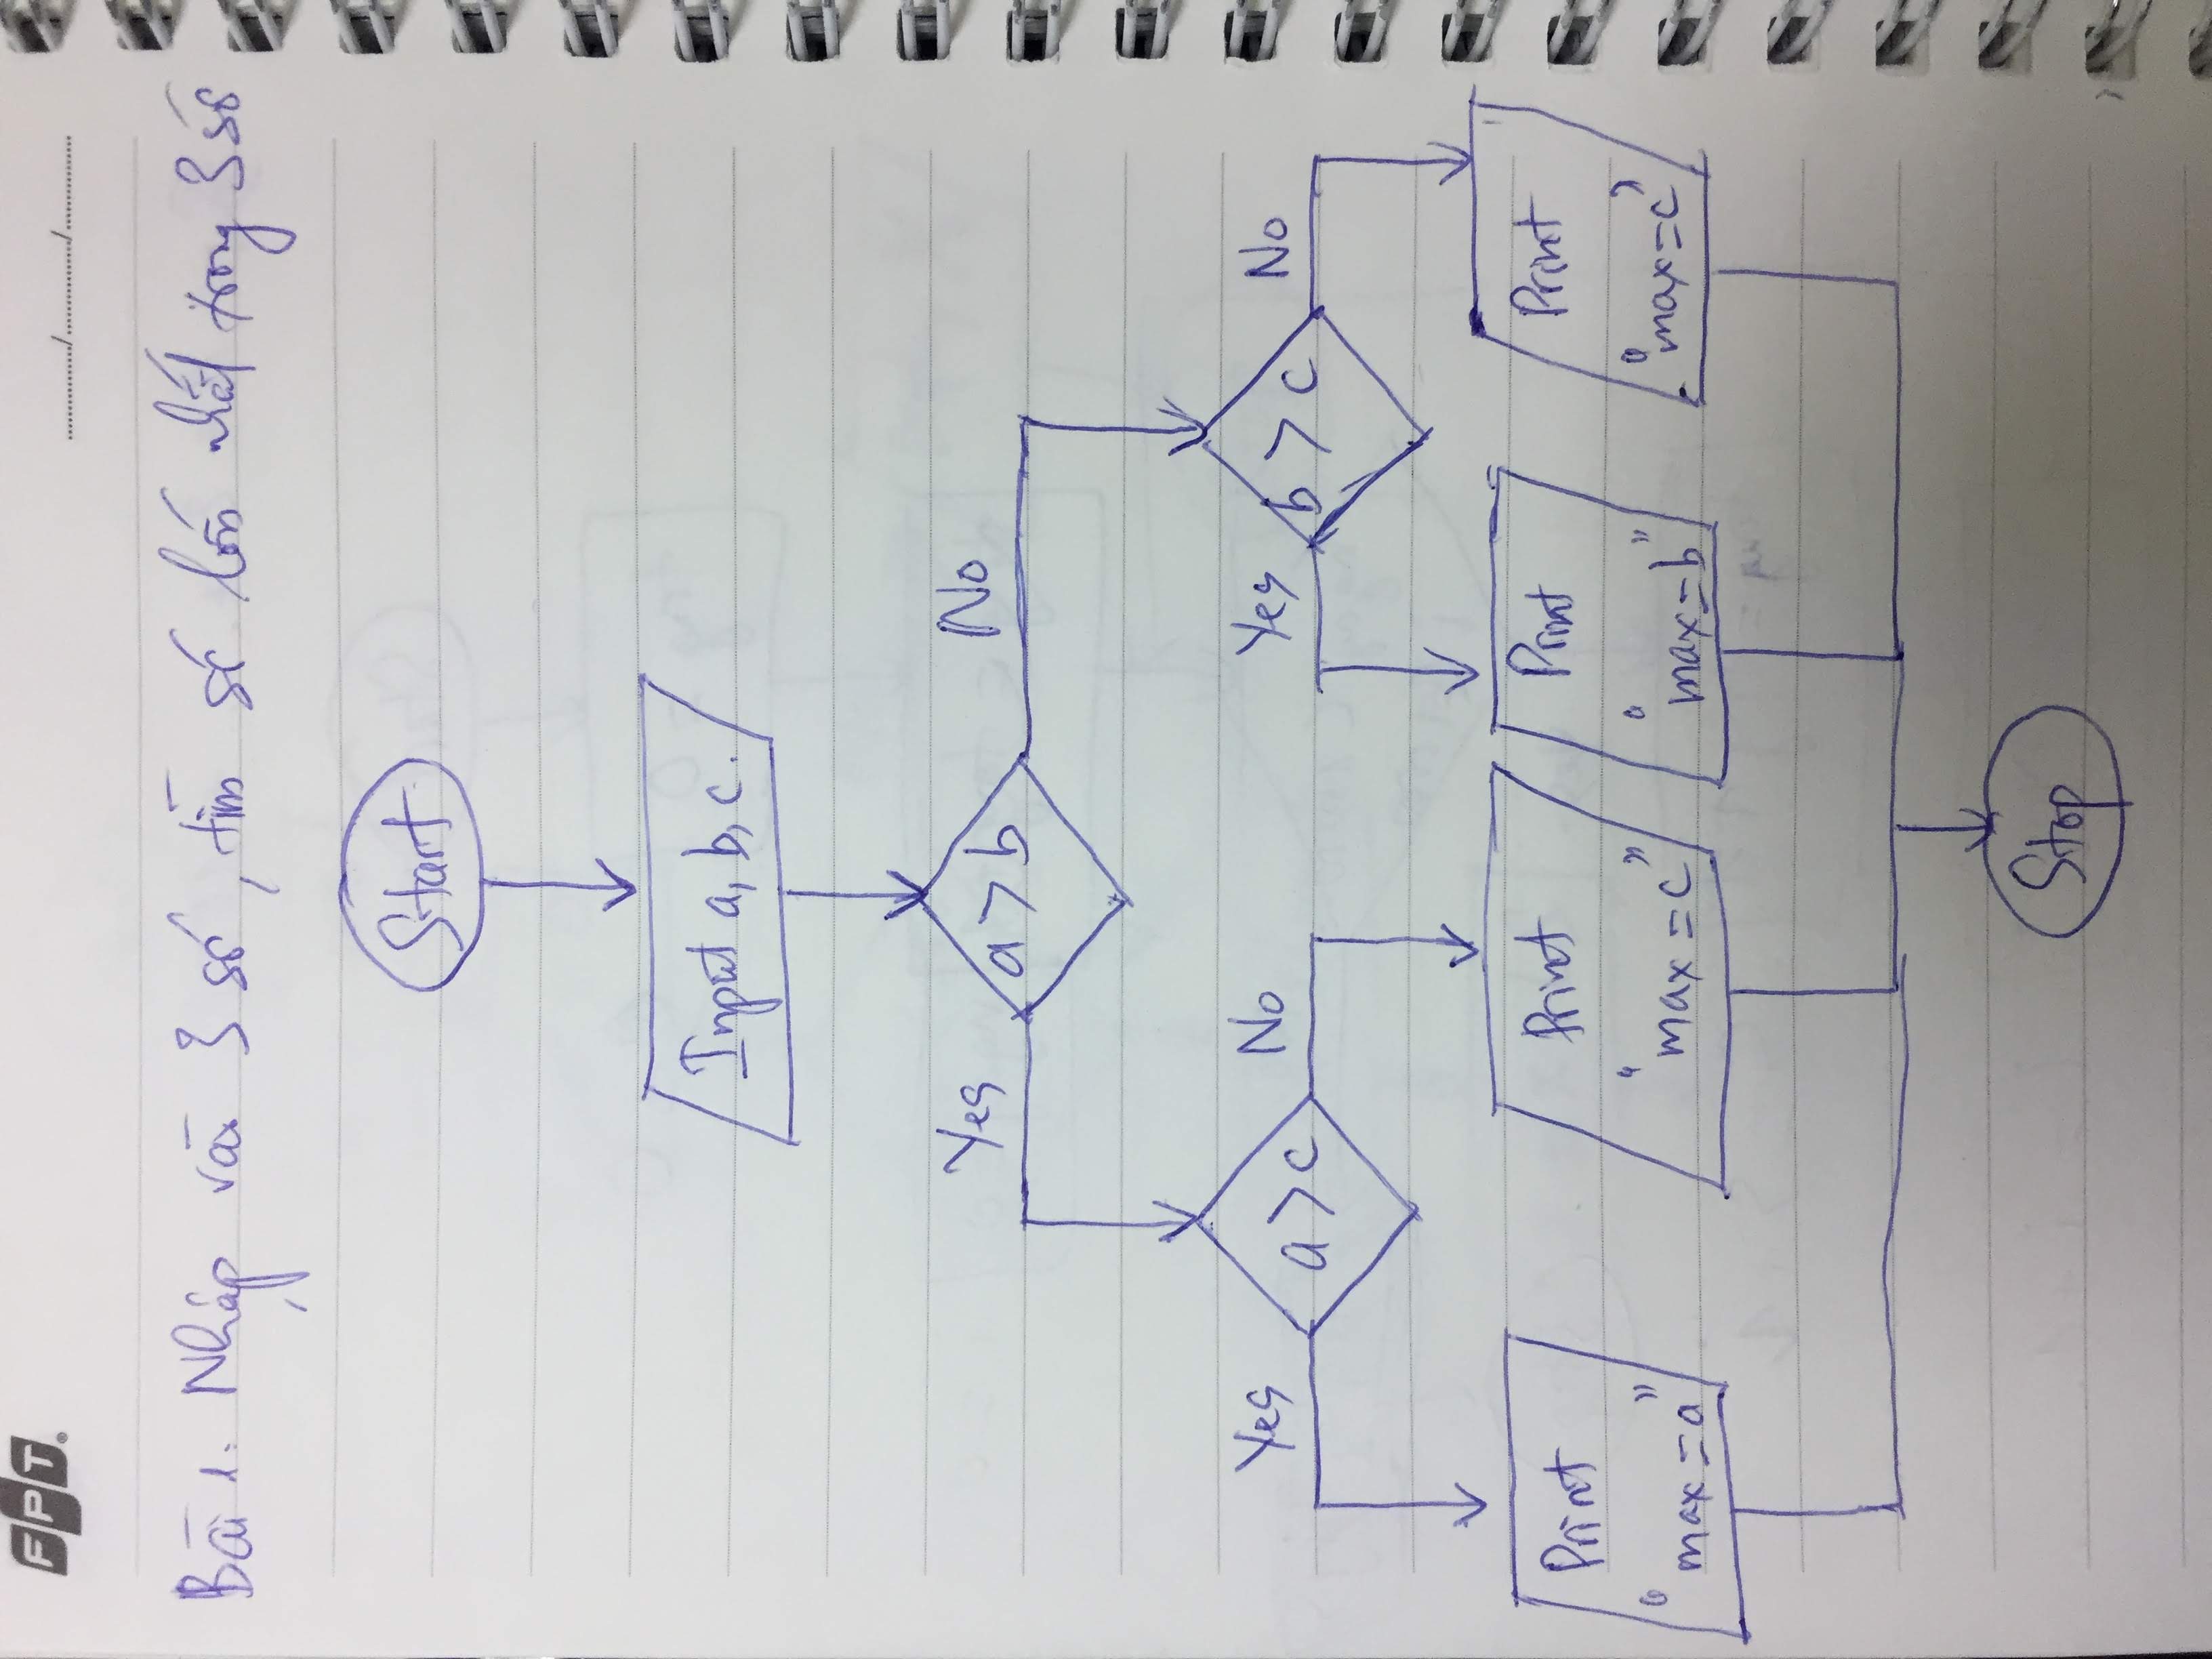 FPT
Bài 1. Nhập vào 3 số, tìm số lớn nhất trong 3 số
Start
Input a, b, c.
Yes
a > b
No
Yes
a > c
No
Yes
b > c
No
Print
"max = a"
Print
"max = c"
Print
"max = b"
Print
"max = c"
Stop